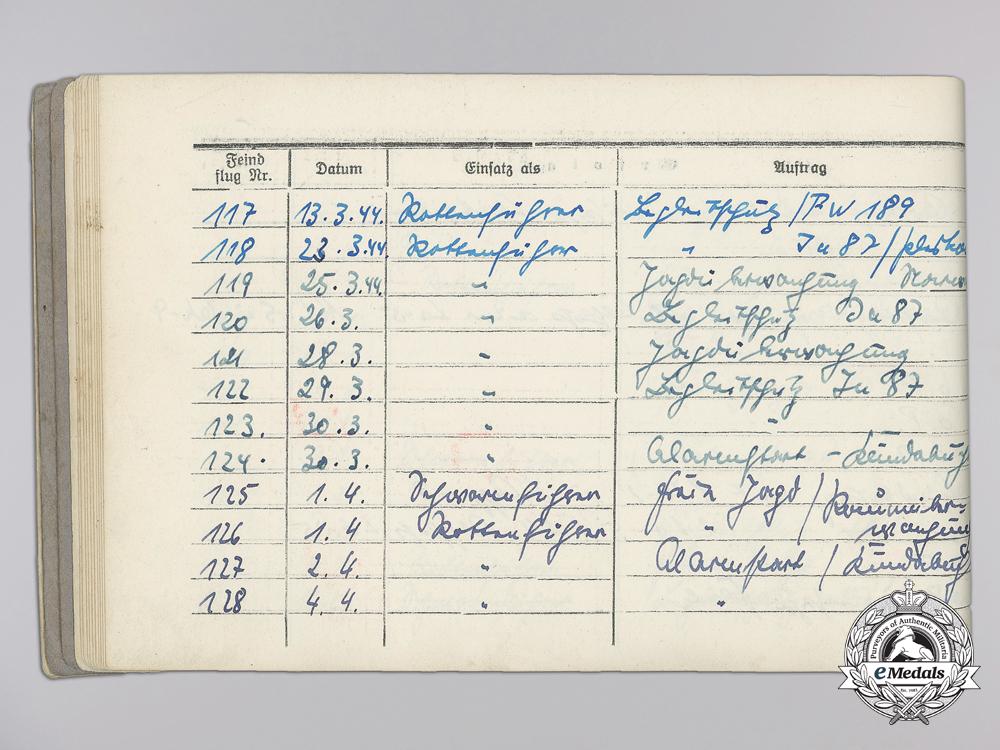 Feind
flug Nr. Datum Einsatz als Auftrag
117 13.3.44. Rottenführer Begleitschutz / FW 189
118 23.3.44 Rottenführer " Ju 87 /
119 25.3.44. " Jagdüberwachung
120 26.3. " Begleitschutz Ju 87
121 28.3. " Jagdüberwachung
122 29.3. " Begleitschutz Ju 87
123. 30.3. " "
124. 30.3. " Alarmstart - Kundabuch
125 1.4. Schwarmführer freie Jagd / Raumüber-
126 1.4 Rottenführer " wachung
127 2.4. " Alarmstart / Kundabuch
128 4.4. " "
Purveyors of Authentic Militaria
eMedals
Est. 1967